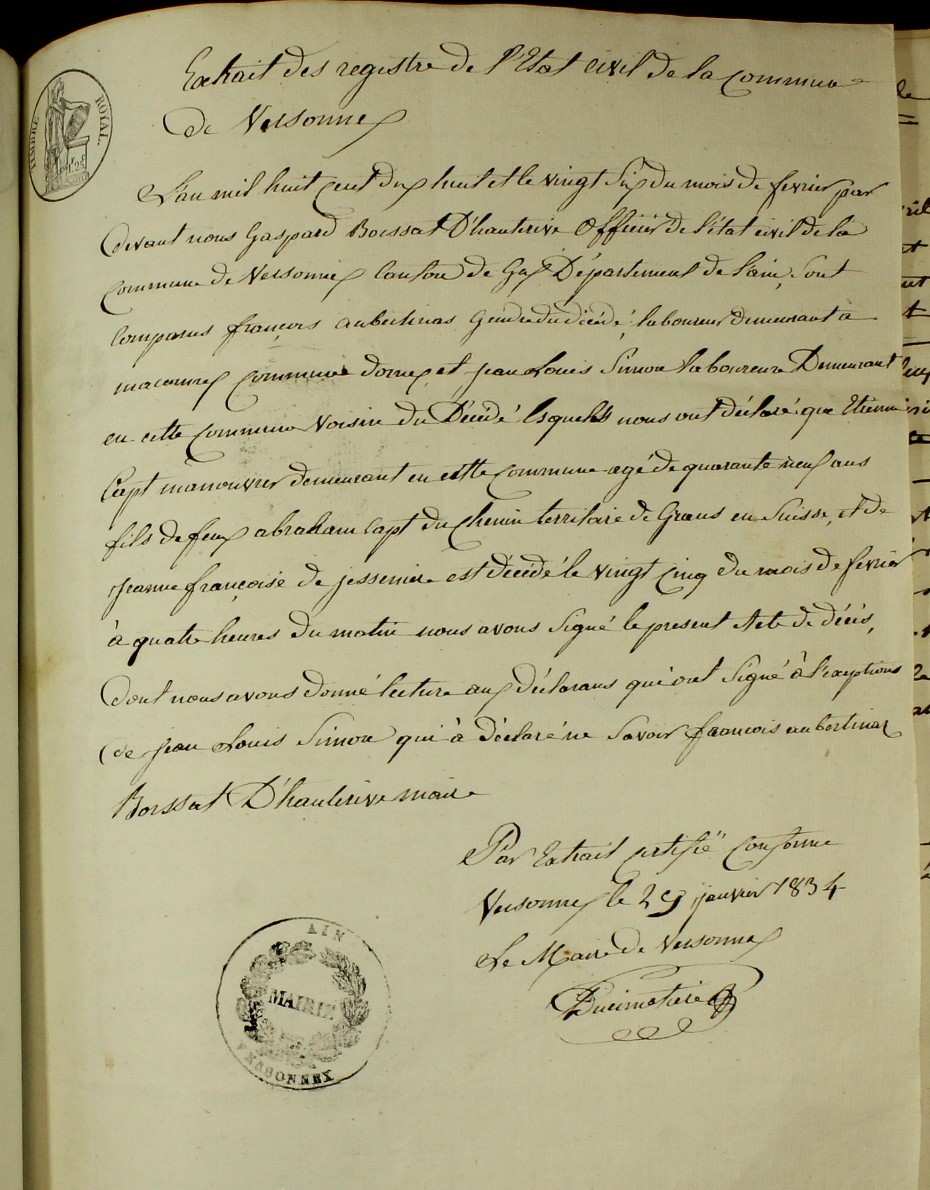 TIMBRE ROYAL.
Extrait des registre de l'Etat civil de la commune
de Versonnex
L'an mil huit cent dix huit et le vingt six du mois de fevrier par
devant nous Gaspard Boissat D'hauterive Officier de l'état civil de la
commune de Versonnex Canton de Gex Département de l'ain, sont
comparus françois aubertinas Gendre du décédé, laboureur demeurant à
commune dornex et jean Louis Simon laboureure Demeurant
en cette commune voisin du Décédé lesquels nous ont déclaré que Etienne
Capt manouvrier demeurant en cette commune agé de quarante neuf ans
fils de feux abraham Capt du Chenit territoire de Grans en Suisse, et de
jeanne françoise de est décédé le vingt cinq du mois de fevrier
à quatre heures du matin nous avons signé le present Acte de décès,
dont nous avons donné lecture aux déclarans qui ont signé à l'exceptions
de jean Louis Simon qui à déclaré ne savoir francois aubertinaz
Boissat D'hauterive maire
Par Extrait certifié conforme
Versonnex le 29 janvier 1834
Le Maire de Versonnex
AIN
MAIRIE